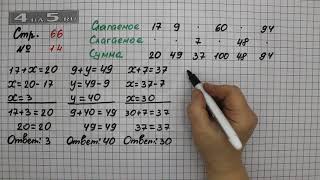 4 НА 5.RU
Стр. 66
№ 14
Слагаемое 17 9 . 60 . .
Слагаемое . . 7 . . 48
Сумма 20 49 37 100 48 94
17+x=20 9+y=49 x+7=37
x=20-17 y=49-9 x=37-7
x=3 y=40 x=30
17+3=20 9+40=49 30+7=37
20=20 49=49 37=37
Ответ: 3 Ответ: 40 Ответ: 30